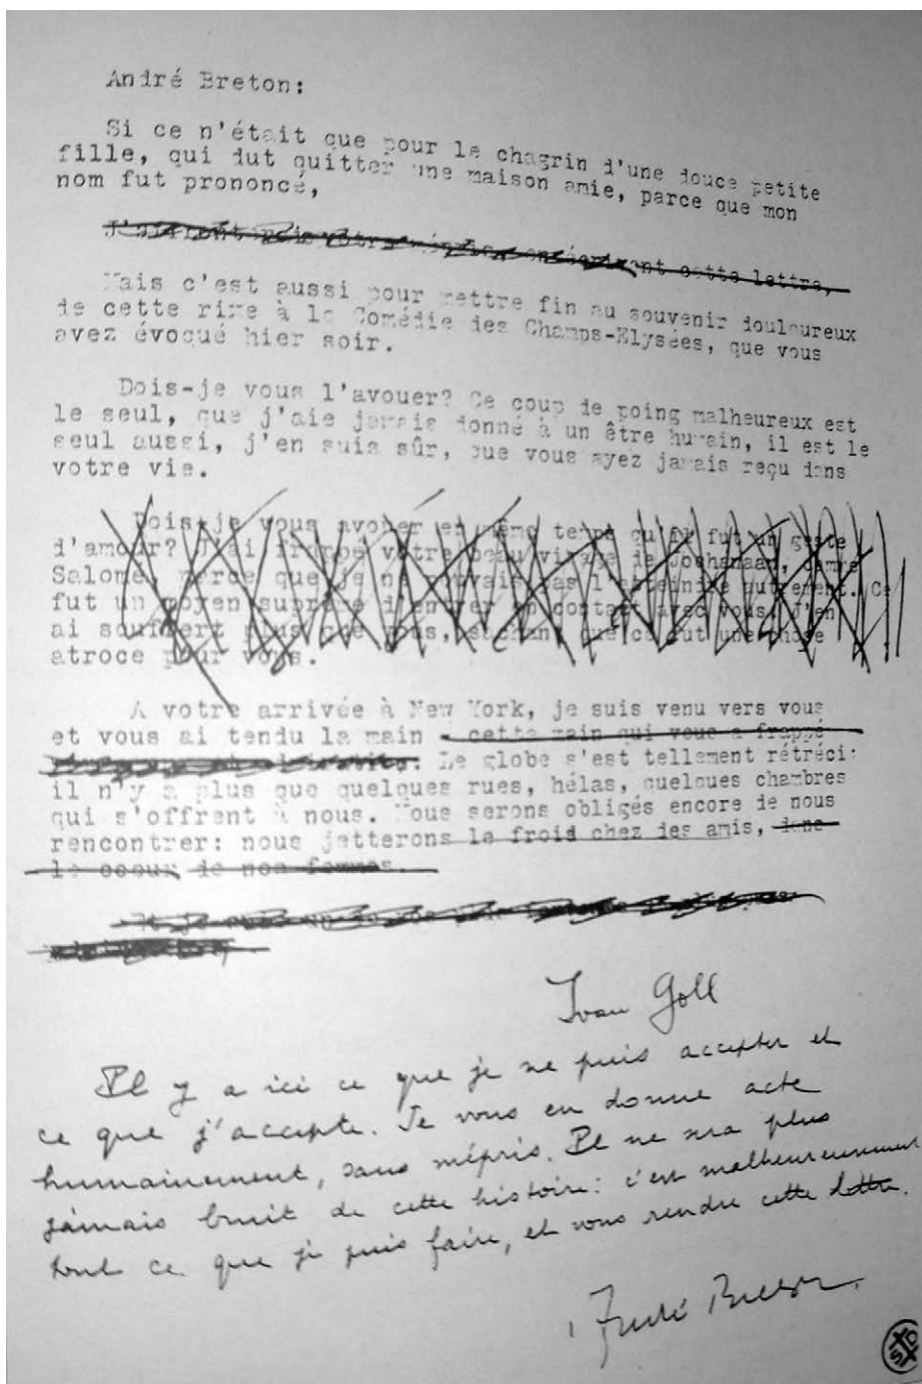 André Breton:
Si ce n'était que pour le chagrin d'une douce petite
fille, qui dut quitter une maison amie, parce que mon
nom fut prononcé,
cette lettre,
Mais c'est aussi pour mettre fin au souvenir douloureux
de cette rixe à la Comédie des Champs-Elysées, que vous
avez évoqué hier soir.
Dois-je vous l'avouer? Ce coup de poing malheureux est
le seul, que j'aie jamais donné à un être humain, il est le
seul aussi, j'en suis sûr, que vous ayez jamais reçu dans
votre vie.
Dois-je vous avouer en même temps qu'il fut un geste
d'amour? J'ai frappé votre beau visage de Jochanaan, comme
Salomé, parce que je ne pouvais pas l'atteindre autrement. Ce
fut un moyen suprême d'entrer en contact avec vous. J'en
ai souffert plus que vous, sachant que ce fut une chose
atroce pour vous.
A votre arrivée à New York, je suis venu vers vous
et vous ai tendu la main - cette main qui vous a frappé
Le globe s'est tellement rétréci:
il n'y a plus que quelques rues, hélas, quelques chambres
qui s'offrent à nous. Nous serons obligés encore de nous
rencontrer: nous jetterons le froid chez des amis, dans
le coeur de nos femmes.
Ivan Goll
Il y a ici ce que je ne puis accepter et
ce que j'accepte. Je vous en donne acte
humainement, sans mépris. Il ne sera plus
jamais bruit de cette histoire: c'est malheureusement
tout ce que je puis faire, et vous rendre cette lettre.
André Breton.